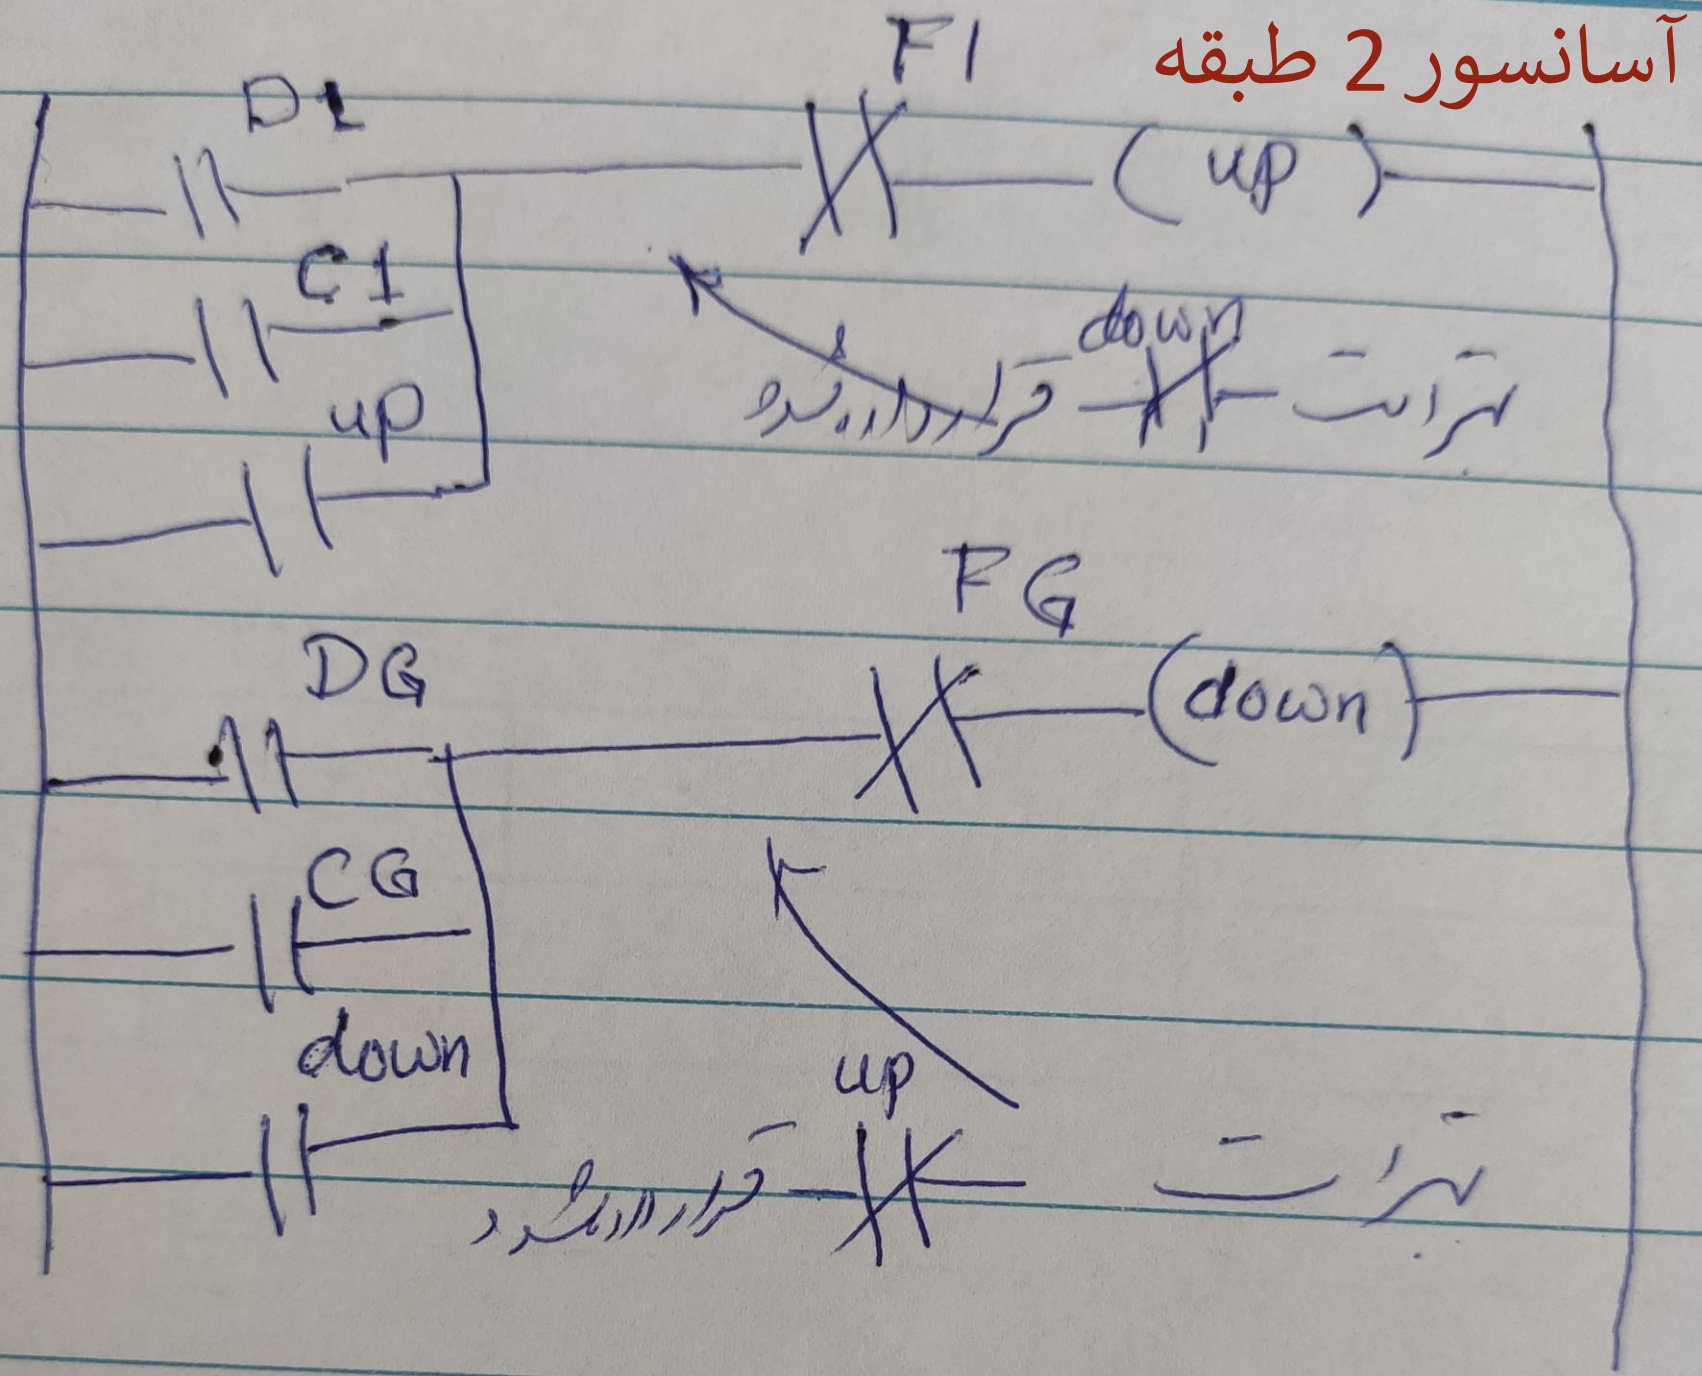 آسانسور 2 طبقه
D1
F1
(up)
C1
down
بهتر است
قرار داده شود
up
FG
DG
(down)
CG
down
up
بهتر است
قرار داده شود